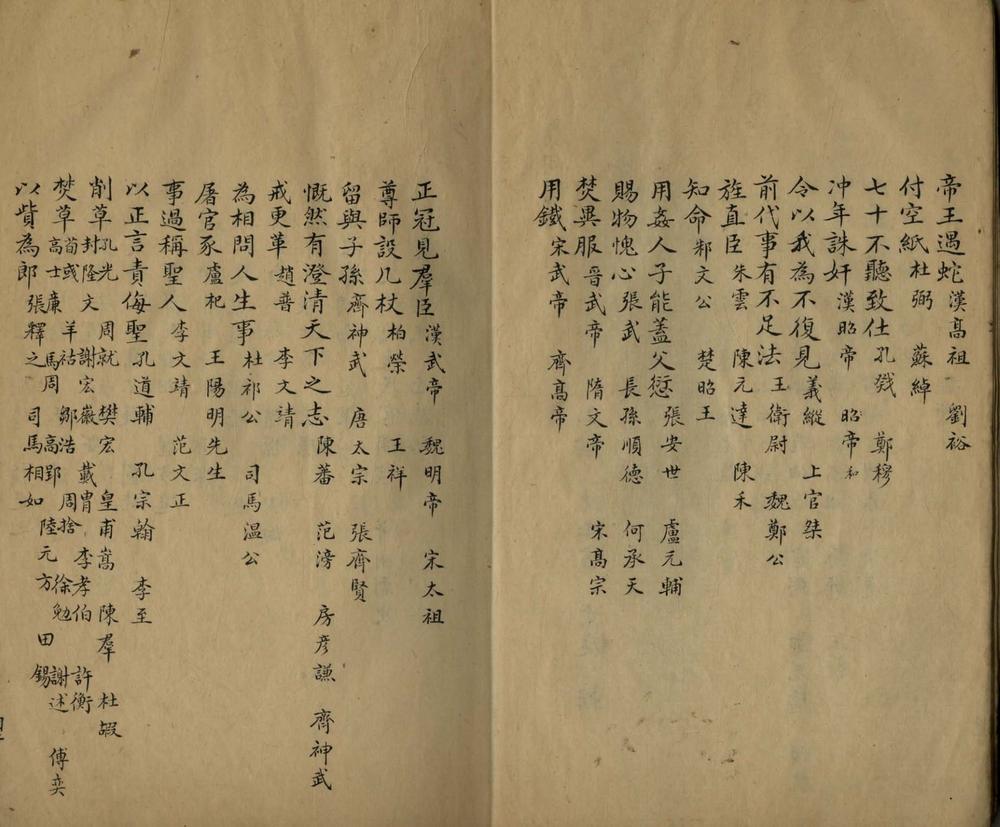 帝王遇蛇 漢高祖 劉裕
付空紙 杜弼 蘇綽
七十不聽致仕 孔戣 鄭穆
冲年誅奸 漢昭帝 昭帝和
令以我為不復見 義縱 上官桀
前代事有不足法 王衛尉 魏鄭公
旌直臣 朱雲 陳元達 陳禾
知命 邾文公 楚昭王
用姦人子能蓋父愆 張安世 盧元輔
賜物愧心 張武 長孫順德 何承天
焚異服 晋武帝 隋文帝 宋髙宗
用鐵 宋武帝 齊髙帝
正冠見羣臣 漢武帝 魏明帝 宋太祖
尊師設几杖 桓榮 王祥
留與子孫 齊神武 唐太宗 張齊賢
慨然有澄清天下之志 陳蕃 范滂 房彦謙 齊神武
戒更革 趙普 李文靖
為相問人生事 杜祁公 司馬温公
屠官豕 盧杞 王陽明先生
事過稱聖人 李文靖 范文正
以正言責侮聖 孔道輔 孔宗翰 李至
削草 孔光 周就 樊宏 皇甫嵩 陳羣 杜嘏
封隆文 謝宏㣲 戴胄 李孝伯 許衡
焚草 荀彧 羊祜 鄒浩 周捨 徐勉 謝述 傅奕
高士廉 馬周 高郢 陸元方 田錫
以貲為郎 張釋之 司馬相如